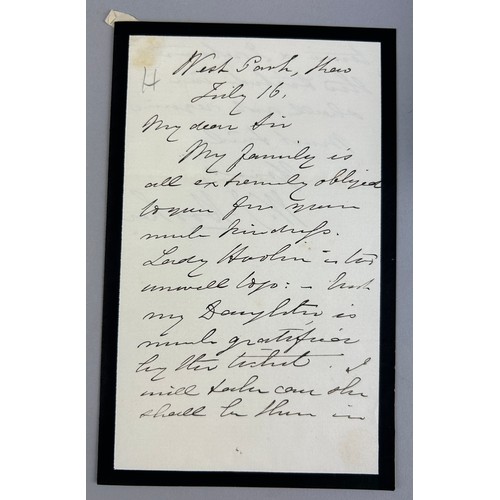 H
West Park, Kew
July 16.
My dear Sir
My family is
all extremely obliged
to you for your
much kindness.
Lady Hooker is too
unwell to go: – but
my Daughter is
much gratified
by the ticket. I
will take care she
shall be there in